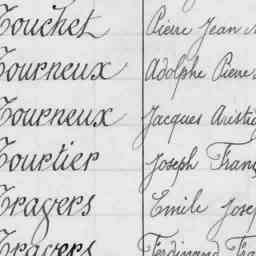 Touchet Pierre Jean
Tourneux Adolphe Pierre
Tourneux Jacques
Tourtier Joseph
Travers Emile
Travers Ferdinand